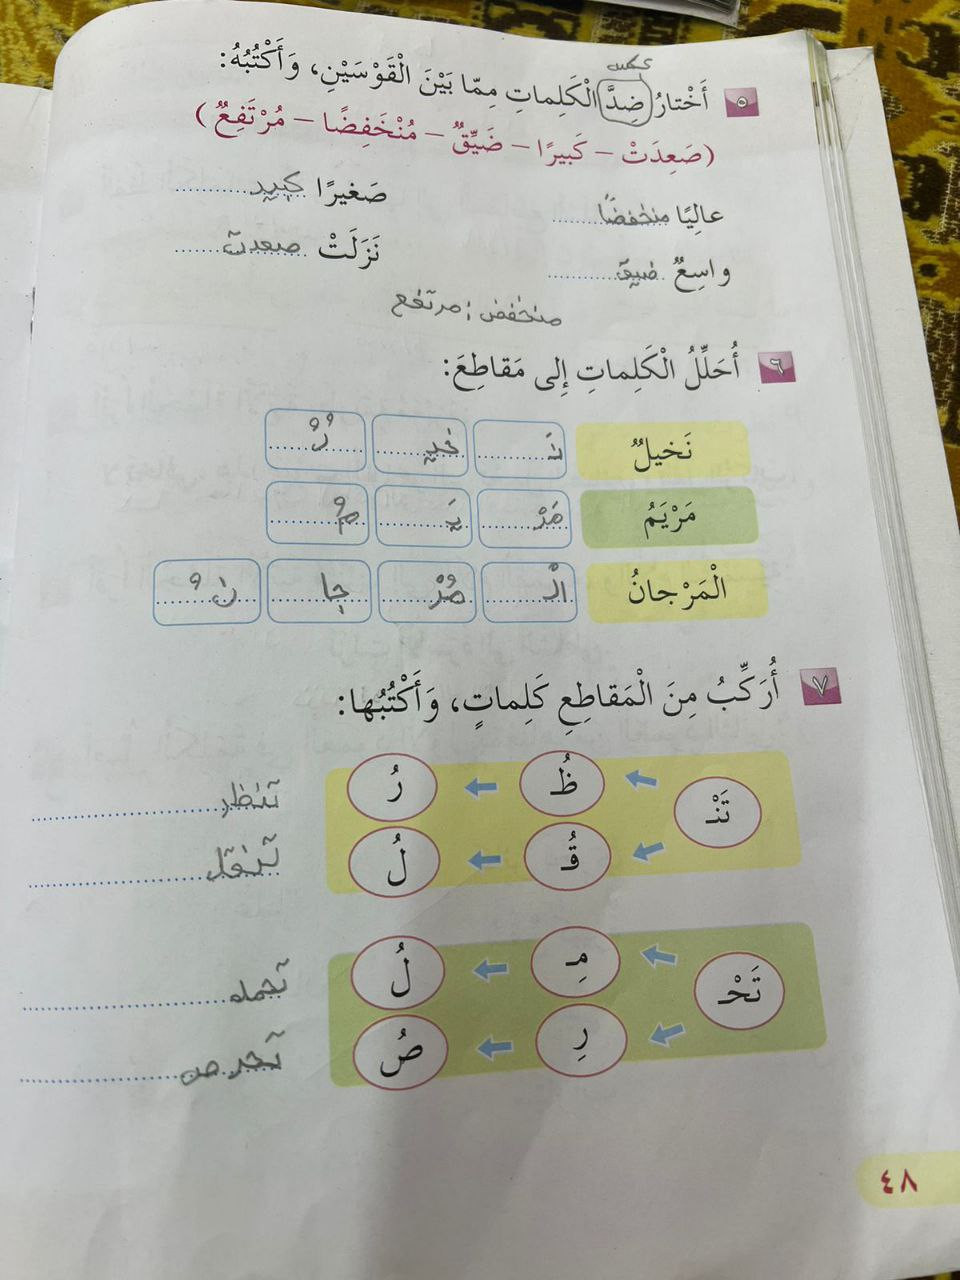 عكس
٥ أَخْتارُ ضِدَّ الْكَلِماتِ مِمّا بَيْنَ الْقَوْسَيْنِ، وَأَكْتُبُهُ:
(صَعِدَتْ – كَبيرًا – ضَيِّقٌ – مُنْخَفِضًا – مُرْتَفِعٌ)
عالِيًا منخفضًا صَغيرًا كبير
واسِعٌ ضيق نَزَلَتْ صعدت
منخفض: مرتفع
٦ أُحَلِّلُ الْكَلِماتِ إِلى مَقاطِعَ:
نَخيلٌ نَـ خيـ لٌ
مَرْيَمُ مَرْ يَـ مُ
الْمَرْجانُ الْـ مَرْ جا نُ
٧ أُرَكِّبُ مِنَ الْمَقاطِعِ كَلِماتٍ، وَأَكْتُبُها:
تَنْـ ظُـ رُ تنظر
قُـ لُ تنقل
تَحْـ مِـ لُ تحمل
رِ صُ تحرص
٤٨